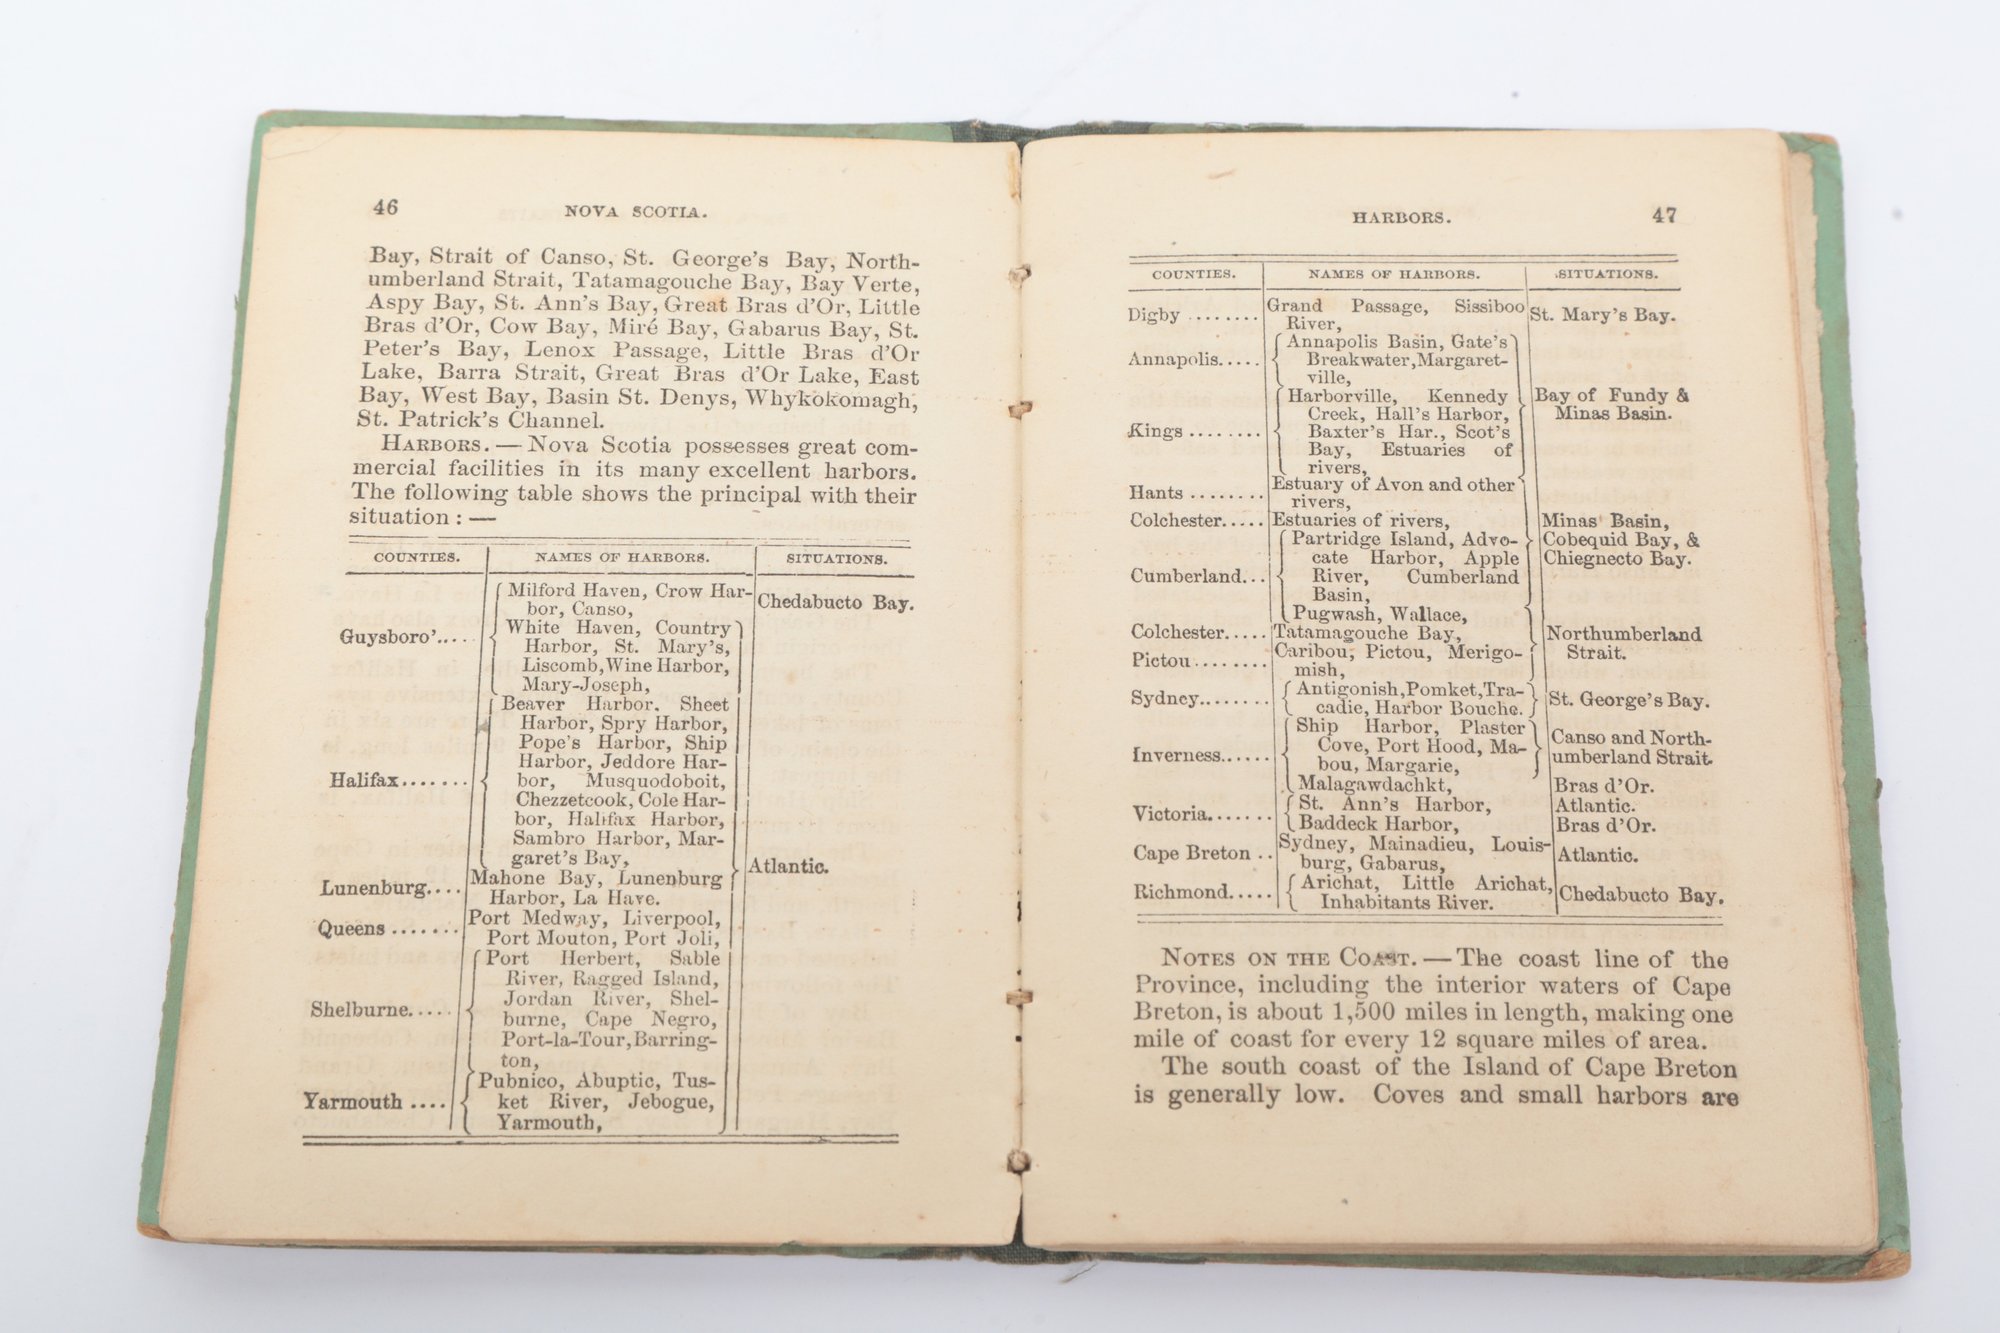 46
NOVA SCOTIA.
Bay, Strait of Canso, St. George's Bay, North-
umberland Strait, Tatamagouche Bay, Bay Verte,
Aspy Bay, St. Ann's Bay, Great Bras d'Or, Little
Bras d'Or, Cow Bay, Miré Bay, Gabarus Bay, St.
Peter's Bay, Lenox Passage, Little Bras d'Or
Lake, Barra Strait, Great Bras d'Or Lake, East
Bay, West Bay, Basin St. Denys, Whykokomagh,
St. Patrick's Channel.
HARBORS. — Nova Scotia possesses great com-
mercial facilities in its many excellent harbors.
The following table shows the principal with their
situation : —
COUNTIES. NAMES OF HARBORS. SITUATIONS.
Milford Haven, Crow Har-
bor, Canso,
Chedabucto Bay.
Guysboro'.....
White Haven, Country
Harbor, St. Mary's,
Liscomb, Wine Harbor,
Mary-Joseph,
Halifax.......
Beaver Harbor. Sheet
Harbor, Spry Harbor,
Pope's Harbor, Ship
Harbor, Jeddore Har-
bor, Musquodoboit,
Chezzetcook, Cole Har-
bor, Halifax Harbor,
Sambro Harbor, Mar-
garet's Bay,
Atlantic.
Lunenburg....
Mahone Bay, Lunenburg
Harbor, La Have.
Queens .......
Port Medway, Liverpool,
Port Mouton, Port Joli,
Shelburne.....
Port Herbert, Sable
River, Ragged Island,
Jordan River, Shel-
burne, Cape Negro,
Port-la-Tour, Barring-
ton,
Yarmouth ....
Pubnico, Abuptic, Tus-
ket River, Jebogue,
Yarmouth,
HARBORS.
47
COUNTIES. NAMES OF HARBORS. SITUATIONS.
Digby ........
Grand Passage, Sissiboo
River,
St. Mary's Bay.
Annapolis.....
Annapolis Basin, Gate's
Breakwater, Margaret-
ville,
Kings ........
Harborville, Kennedy
Creek, Hall's Harbor,
Baxter's Har., Scot's
Bay, Estuaries of
rivers,
Bay of Fundy &
Minas Basin.
Hants ........
Estuary of Avon and other
rivers,
Colchester.....
Estuaries of rivers,
Minas Basin,
Cobequid Bay, &
Chiegnecto Bay.
Cumberland...
Partridge Island, Advo-
cate Harbor, Apple
River, Cumberland
Basin,
Pugwash, Wallace,
Colchester.....
Tatamagouche Bay,
Northumberland
Strait.
Pictou........
Caribou, Pictou, Merigo-
mish,
Sydney........
Antigonish, Pomket, Tra-
cadie, Harbor Bouche.
St. George's Bay.
Inverness......
Ship Harbor, Plaster
Cove, Port Hood, Ma-
bou, Margarie,
Canso and North-
umberland Strait.
Malagawdachkt,
Bras d'Or.
Victoria.......
St. Ann's Harbor,
Atlantic.
Baddeck Harbor,
Bras d'Or.
Cape Breton ..
Sydney, Mainadieu, Louis-
burg, Gabarus,
Atlantic.
Richmond.....
Arichat, Little Arichat,
Inhabitants River.
Chedabucto Bay.
NOTES ON THE COAST. — The coast line of the
Province, including the interior waters of Cape
Breton, is about 1,500 miles in length, making one
mile of coast for every 12 square miles of area.
The south coast of the Island of Cape Breton
is generally low. Coves and small harbors are